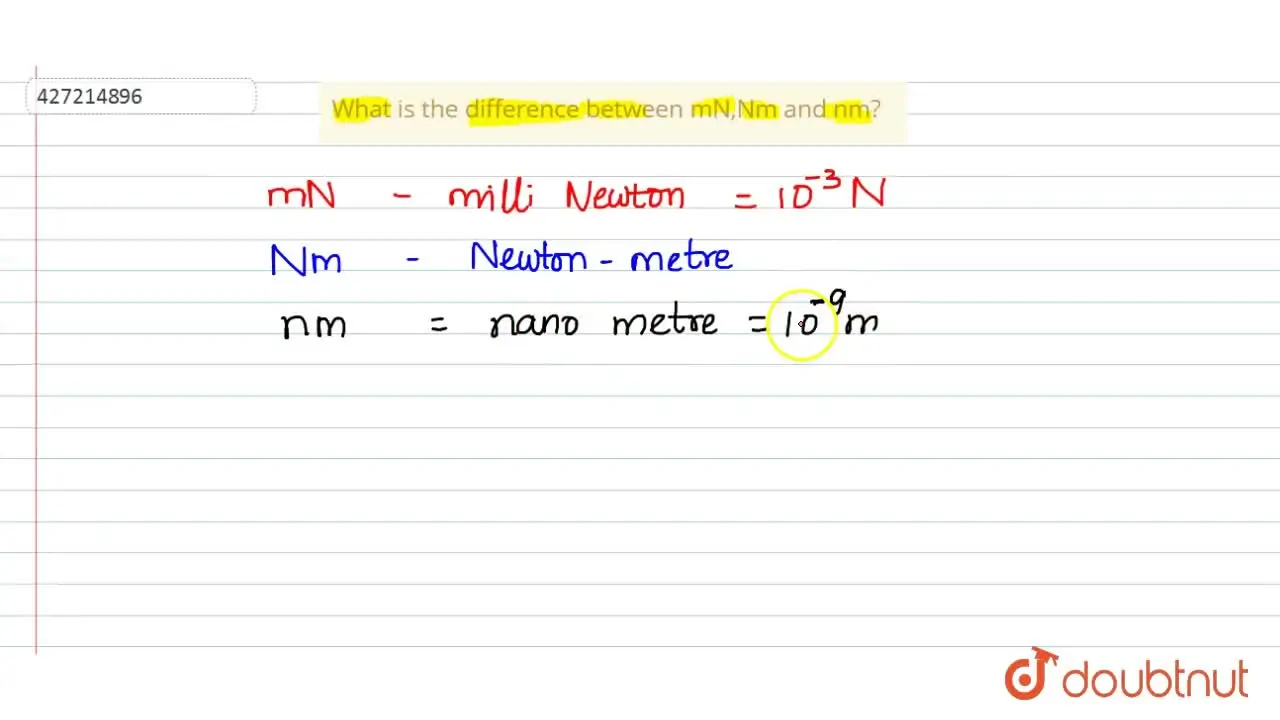 427214896
What is the difference between mN,Nm and nm?
mN - milli Newton = 10⁻³ N
Nm - Newton - metre
nm = nano metre = 10⁻⁹ m
doubtnut